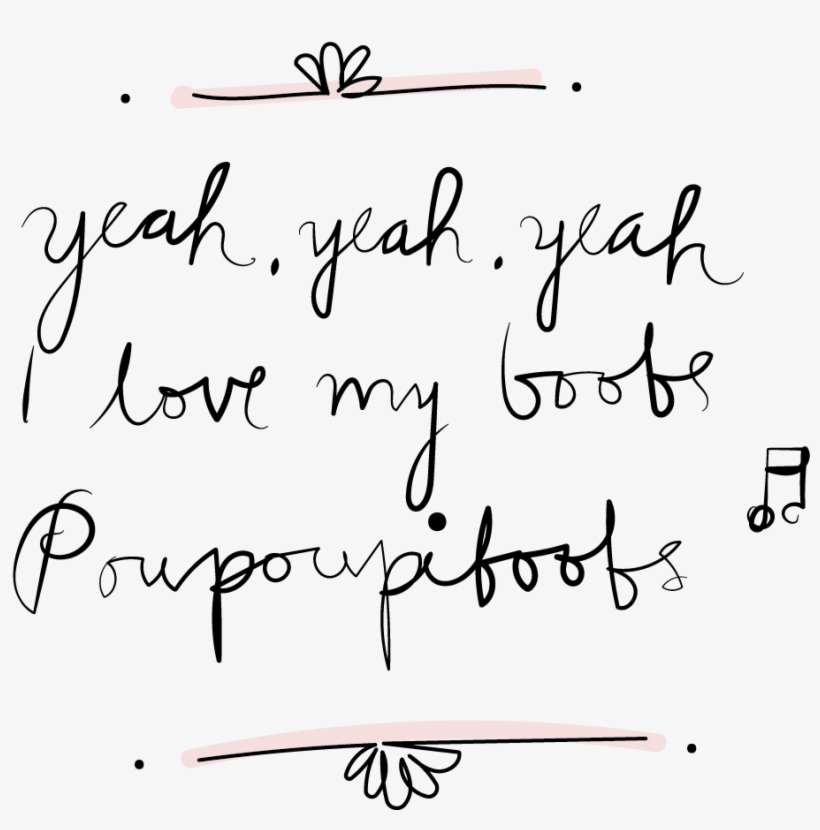 yeah. yeah. yeah
I love my boobs
Poupoupiboobs